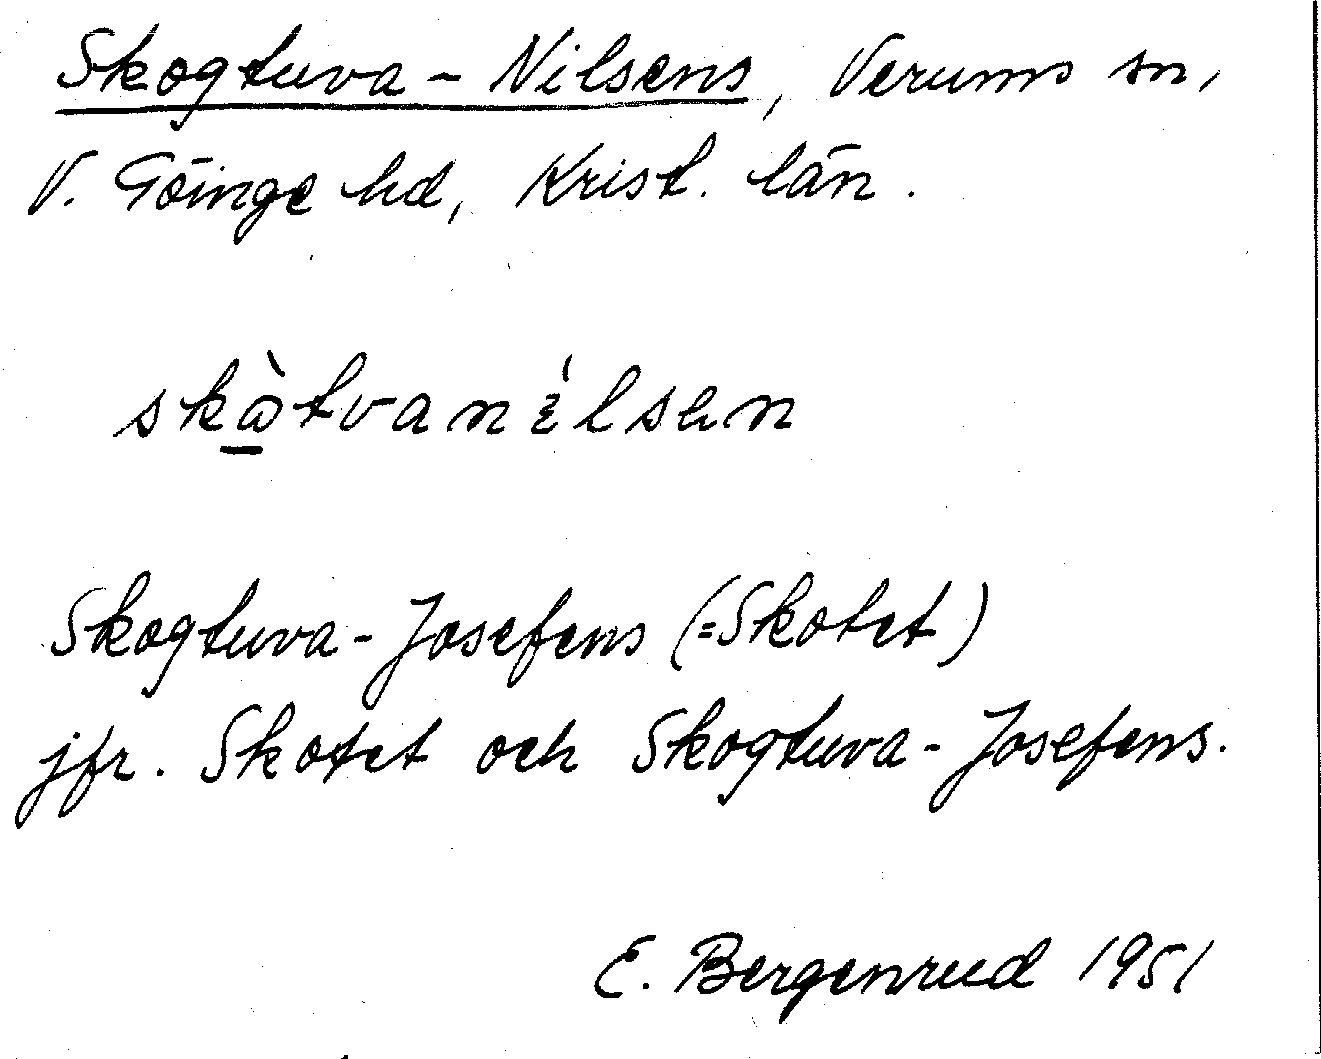 Skogtuva-Nilsens, Verums sn,
V. Göinge hd, Krist. län.
skὼ̠tvanílsen
Skogtuva-Josefens (=Skotet)
jfr. Skotet och Skogtuva-Josefens.
E. Bergenrud 1951